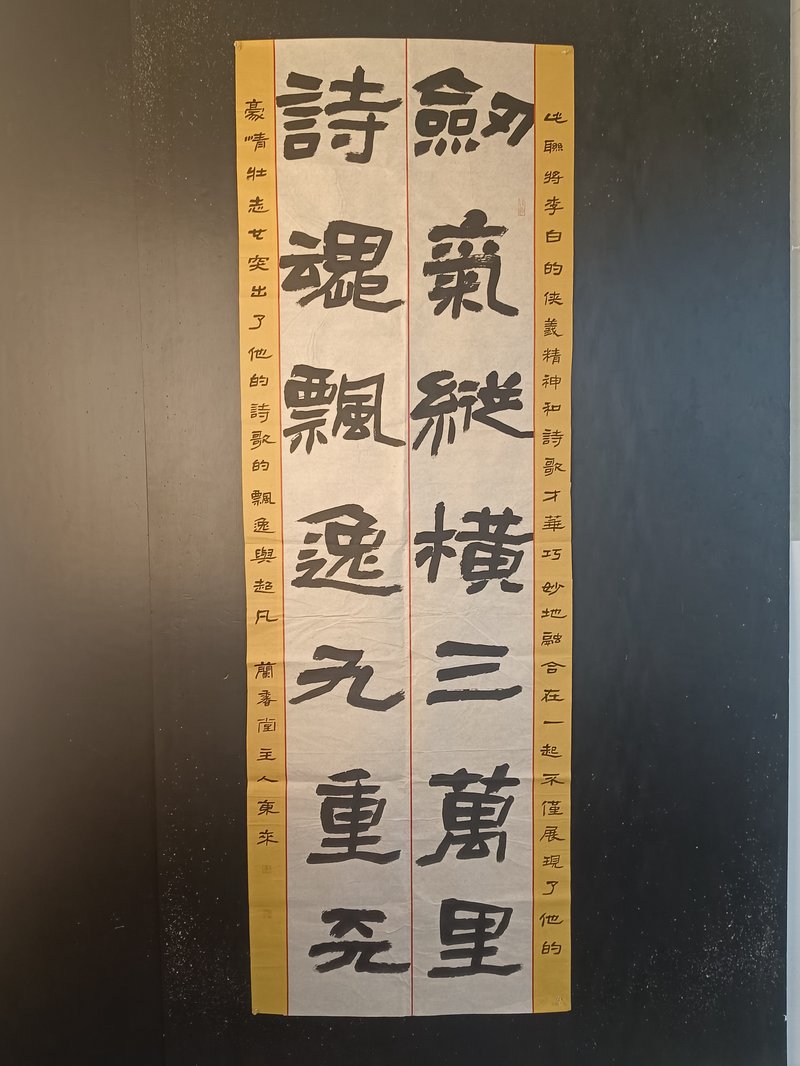 劒氣縱橫三萬里
詩魂飄逸九重天
此聯將李白的侠義精神和詩歌才華巧妙地融合在一起不僅展現了他的
豪情壯志也突出了他的詩歌的飄逸與超凡 蘭香堂主人東來